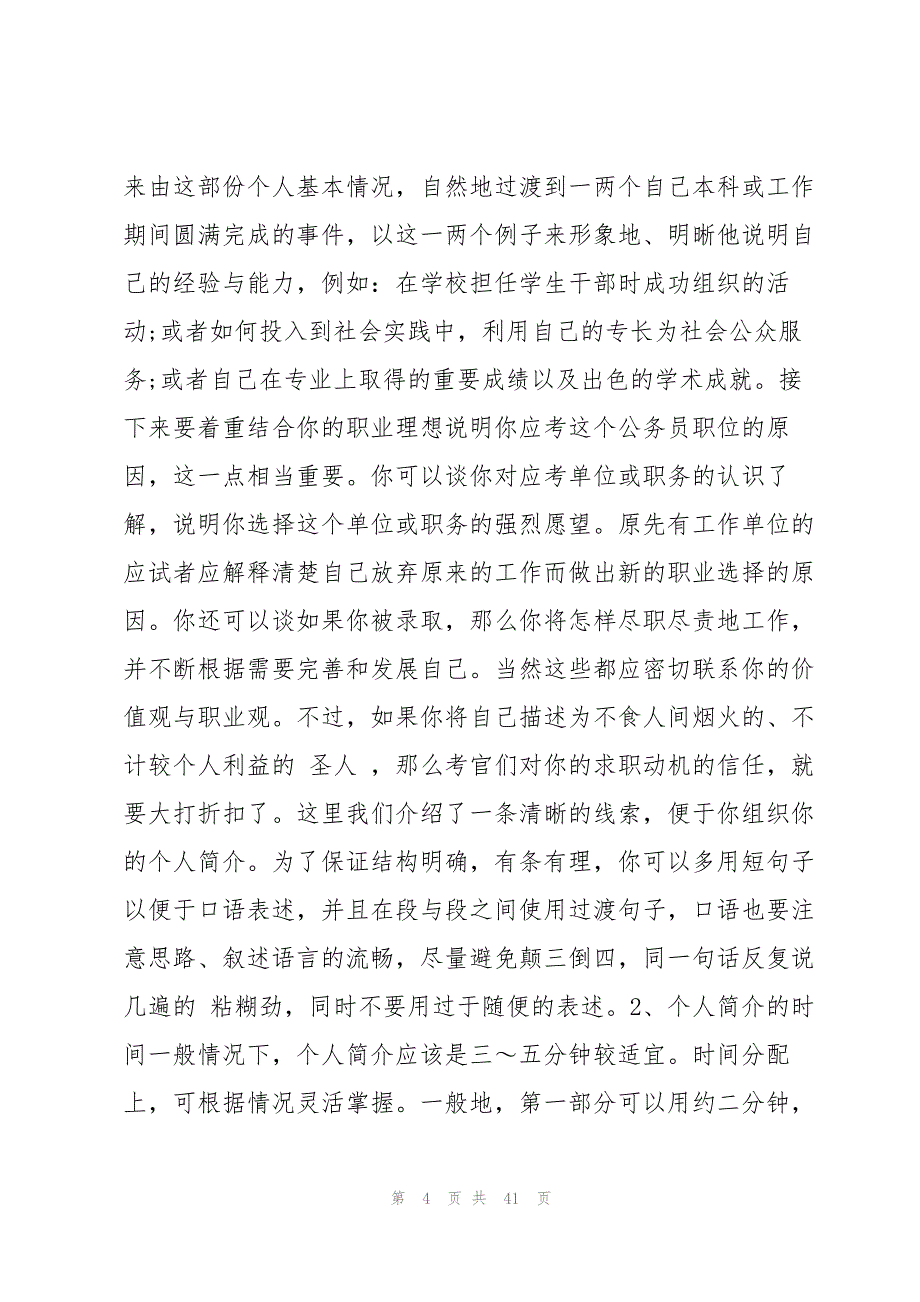 来由这部份个人基本情况，自然地过渡到一两个自己本科或工作
期间圆满完成的事件，以这一两个例子来形象地、明晰他说明自
己的经验与能力，例如：在学校担任学生干部时成功组织的活
动;或者如何投入到社会实践中，利用自己的专长为社会公众服
务;或者自己在专业上取得的重要成绩以及出色的学术成就。接
下来要着重结合你的职业理想说明你应考这个公务员职位的原
因，这一点相当重要。你可以谈你对应考单位或职务的认识了
解，说明你选择这个单位或职务的强烈愿望。原先有工作单位的
应试者应解释清楚自己放弃原来的工作而做出新的职业选择的原
因。你还可以谈如果你被录取，那么你将怎样尽职尽责地工作，
并不断根据需要完善和发展自己。当然这些都应密切联系你的价
值观与职业观。不过，如果你将自己描述为不食人间烟火的、不
计较个人利益的 圣人 ，那么考官们对你的求职动机的信任，就
要大打折扣了。这里我们介绍了一条清晰的线索，便于你组织你
的个人简介。为了保证结构明确，有条有理，你可以多用短句子
以便于口语表述，并且在段与段之间使用过渡句子，口语也要注
意思路、叙述语言的流畅，尽量避免颠三倒四，同一句话反复说
几遍的 粘糊劲，同时不要用过于随便的表述。2、个人简介的时
间一般情况下，个人简介应该是三～五分钟较适宜。时间分配
上，可根据情况灵活掌握。一般地，第一部分可以用约二分钟，
第 4 页 共 41 页